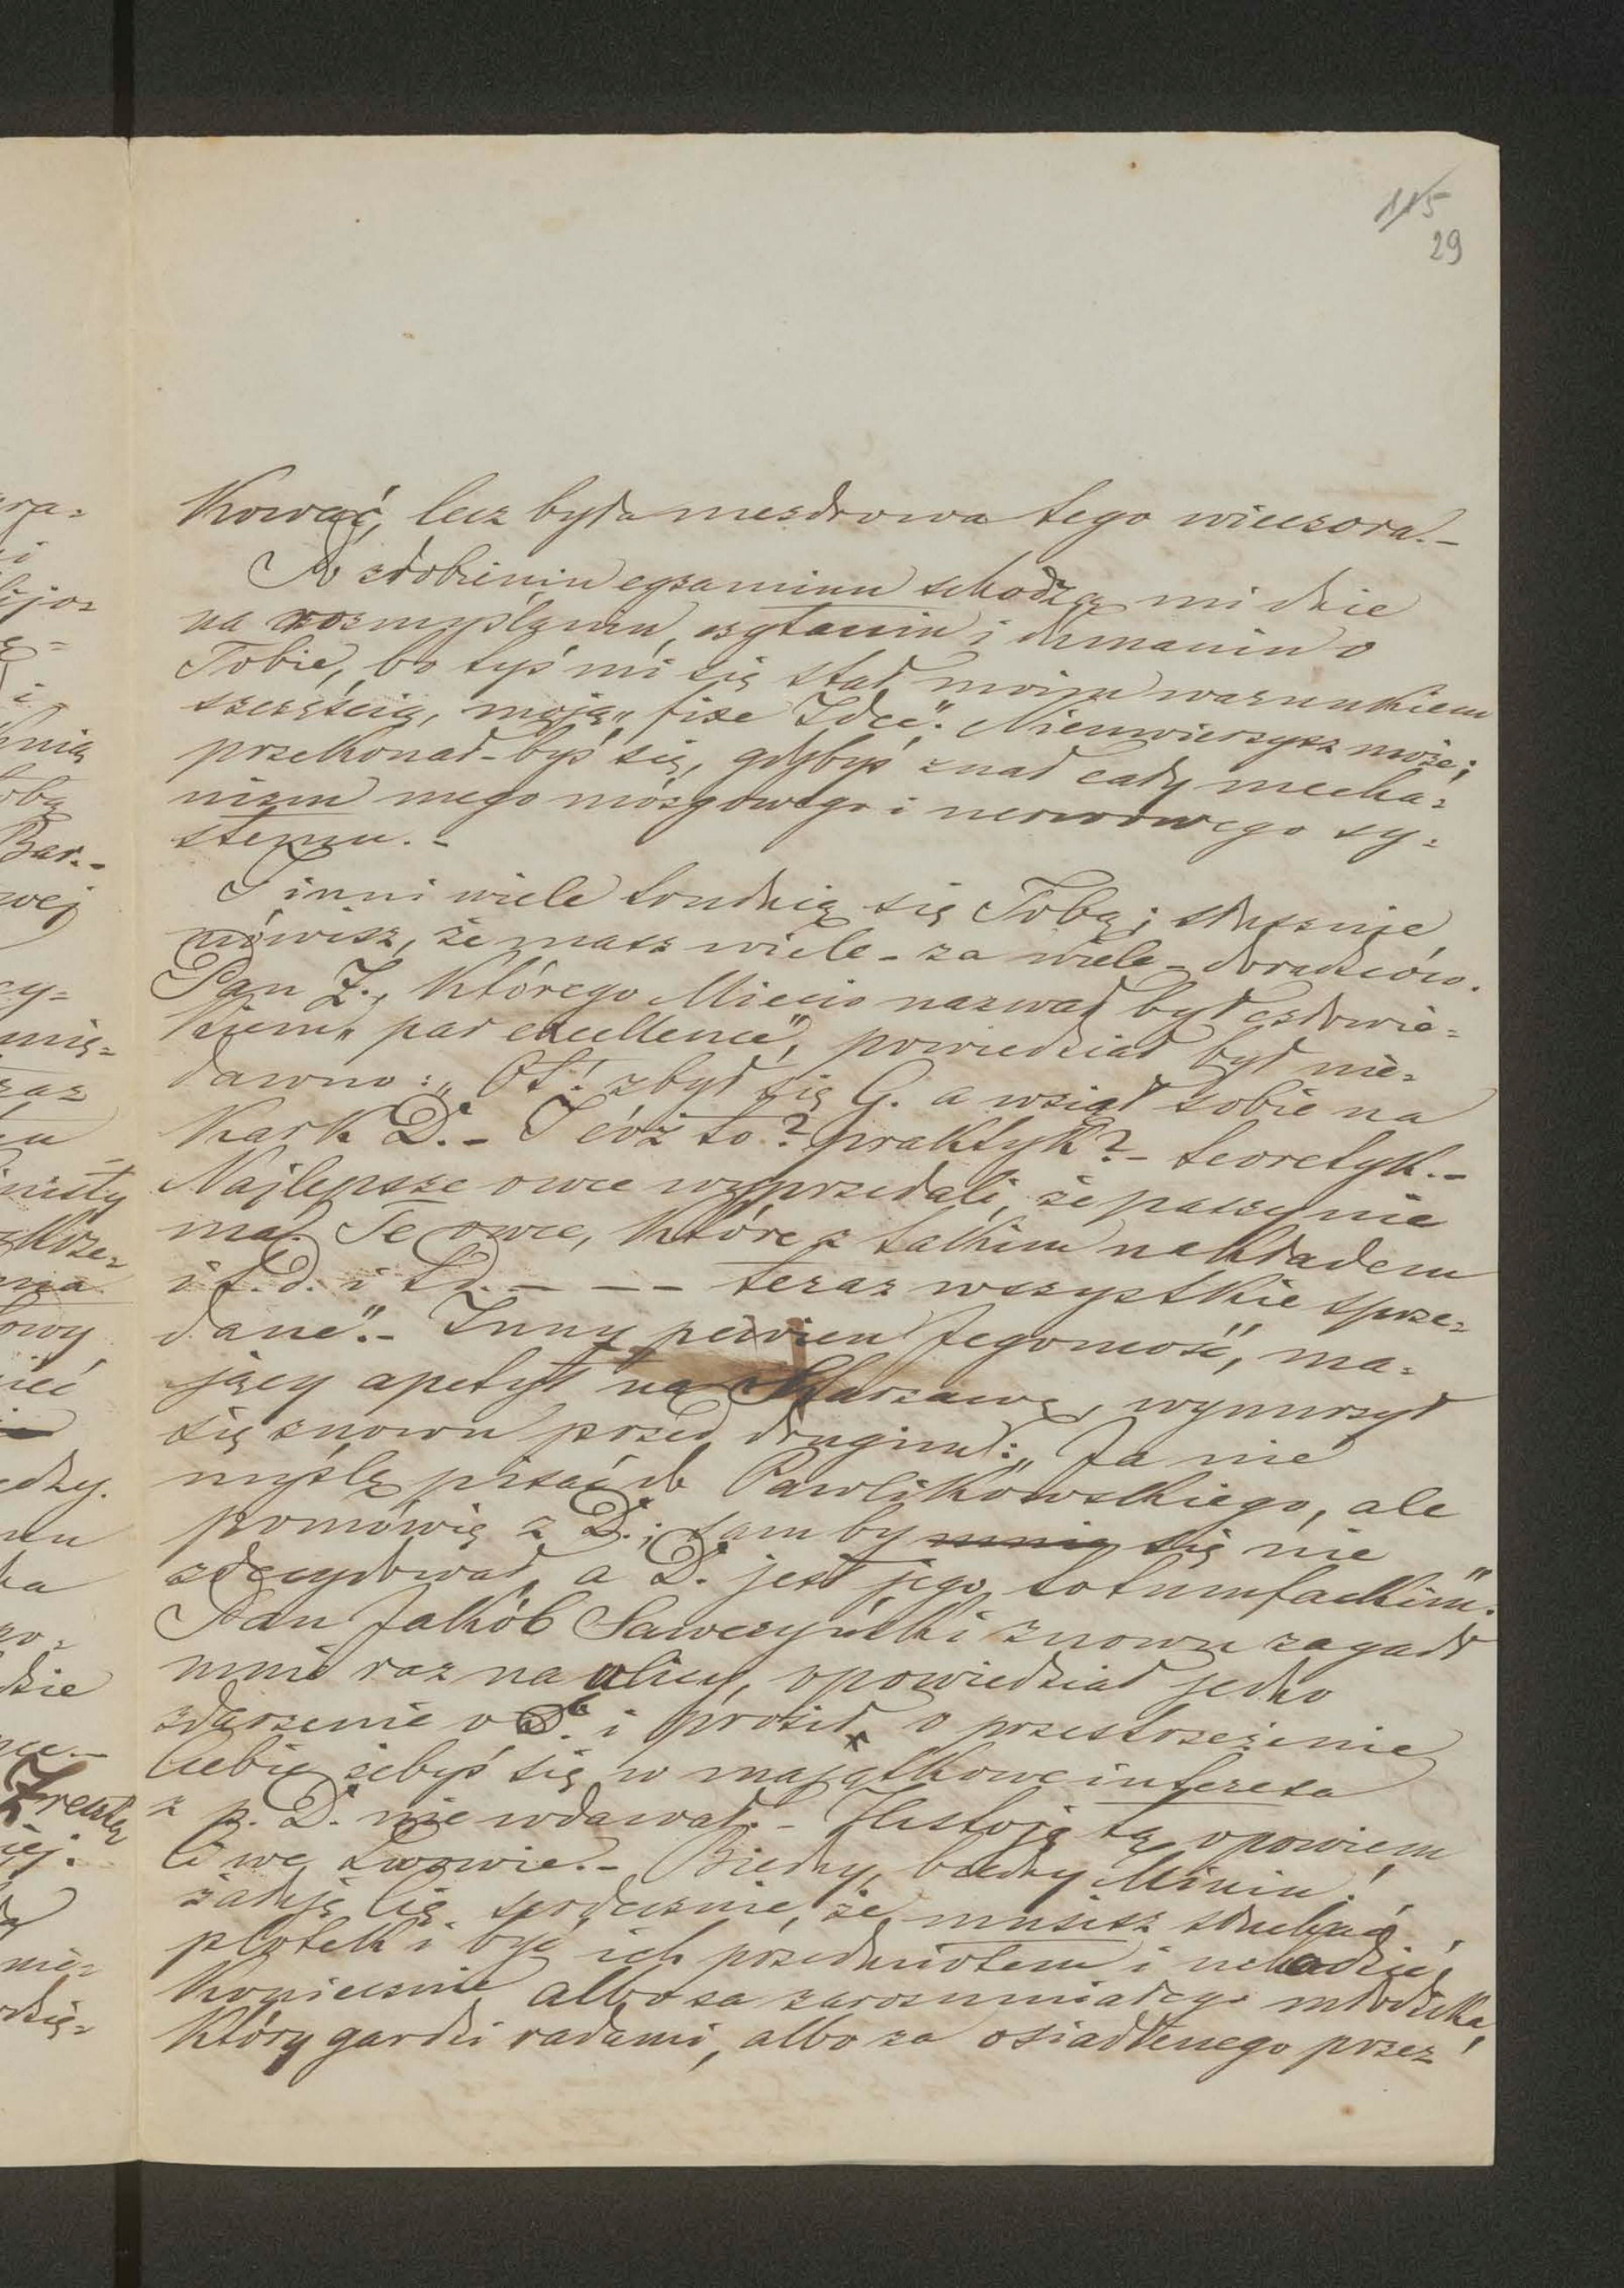 115
29
kować, lecz była niezdrowa tego wieczora.-
Po zrobieniu egzaminu schodzą mi dnie
na rozmyślaniu, czytaniu i dumaniu o
Tobie, bo tyś mi się stał moim warunkiem
szczęścia, moją „fixe Idée". Nieuwierzysz może;
przekonał-byś się, gdybyś znał cały mecha=
nizm mego mózgowego i nerwowego sy=
stemu.-
I inni wiele trudnią się Tobą; słusznie
mówisz, że masz wiele - za wiele - doradców.
Pan Z., którego Miecio nazwał był człowie=
kiem „par excellence", powiedział był nie=
dawno: „Ot! zbył się G. a wziął sobie na
kark D. - I cóż to? praktyk? - teoretyk.-
Najlepsze owce wyprzedali, że paszy nie
ma. Te owce, które z takim nakładem
i t.d. i t.d. - - - teraz wszystkie sprze=
dane".- Inny pewien Jegomość, ma=
jący apetyt na Warzawę, wynurzył
się znowu przed drugim: „Ja nie
myślę pisać do Pawlikowskiego, ale
pomówię z D.; sam by się nie
zdecydował, a D. jest jego totumfackim".
Pan Jakób Sawczyński znowu zagadł
mnie raz na ulicy, opowiedział jedno
zdarzenie o D. i prosił o przestrzeżenie
Ciebie żebyś się w majątkowe interesa
z p. D. nie wdawał.- Historję tę opowiem
Ci we Lwowie.- Biedny, biedny Miciu!
żałuję Cię serdecznie, że musisz słuchać
plotek i być ich przedmiotem i uchodzić,
koniecznie albo za zarozumiałego młodzika,
który gardzi radami, albo za osiodłanego przez